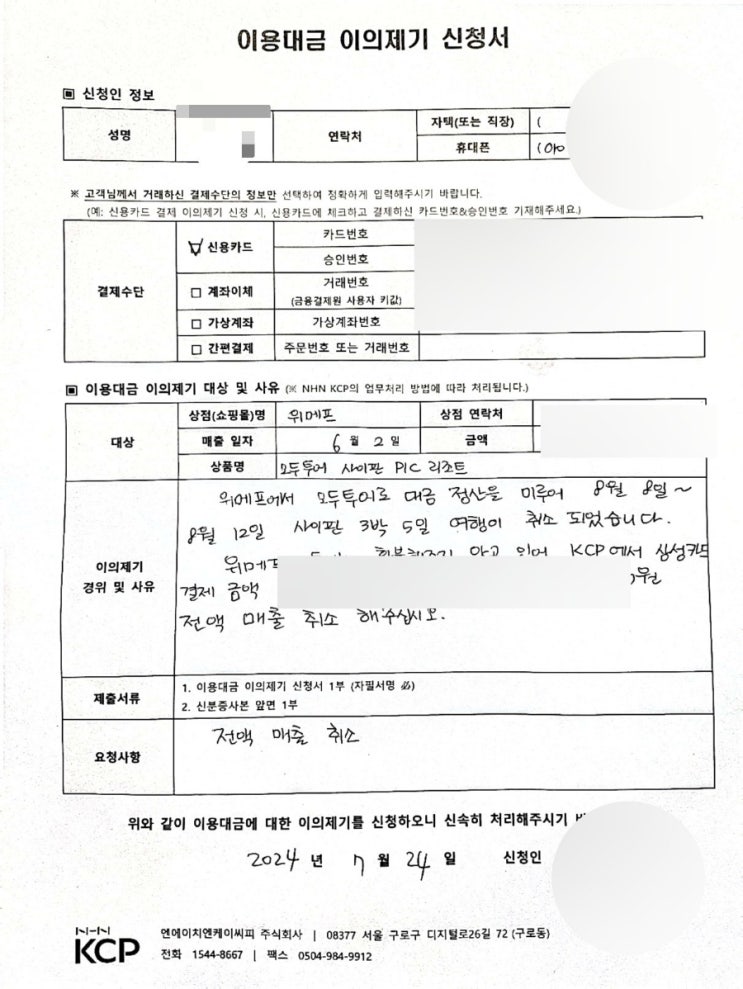 이용대금 이의제기 신청서
▣ 신청인 정보
성명
연락처
자택(또는 직장) (
휴대폰 (010
※ 고객님께서 거래하신 결제수단의 정보만 선택하여 정확하게 입력해주시기 바랍니다.
(예: 신용카드 결제 이의제기 신청 시, 신용카드에 체크하고 결제하신 카드번호&승인번호 기재해주세요.)
결제수단
신용카드 카드번호
승인번호
□ 계좌이체 거래번호
(금융결제원 사용자 키값)
□ 가상계좌 가상계좌번호
□ 간편결제 주문번호 또는 거래번호
▣ 이용대금 이의제기 대상 및 사유 (※ NHN KCP의 업무처리 방법에 따라 처리됩니다.)
대상
상점(쇼핑몰)명 위메프 상점 연락처
매출 일자 6 월 2 일 금액
상품명 모두투어 사이판 PIC 리조트
이의제기
경위 및 사유
위메프에서 모두투어로 대금 정산을 미루어 8월 8일~
8월 12일 사이판 3박 5일 여행이 취소 되었습니다.
위메프 않고 있어 KCP에서 삼성카드
결제 금액 원
전액 매출 취소 해주십시오.
제출서류
1. 이용대금 이의제기 신청서 1부 (자필서명 必)
2. 신분증사본 앞면 1부
요청사항
전액 매출 취소
위와 같이 이용대금에 대한 이의제기를 신청하오니 신속히 처리해주시기
2024 년 7 월 24 일 신청인
NHN
KCP
엔에이치엔케이씨피 주식회사 | 08377 서울 구로구 디지털로26길 72 (구로동)
전화 1544-8667 | 팩스 0504-984-9912